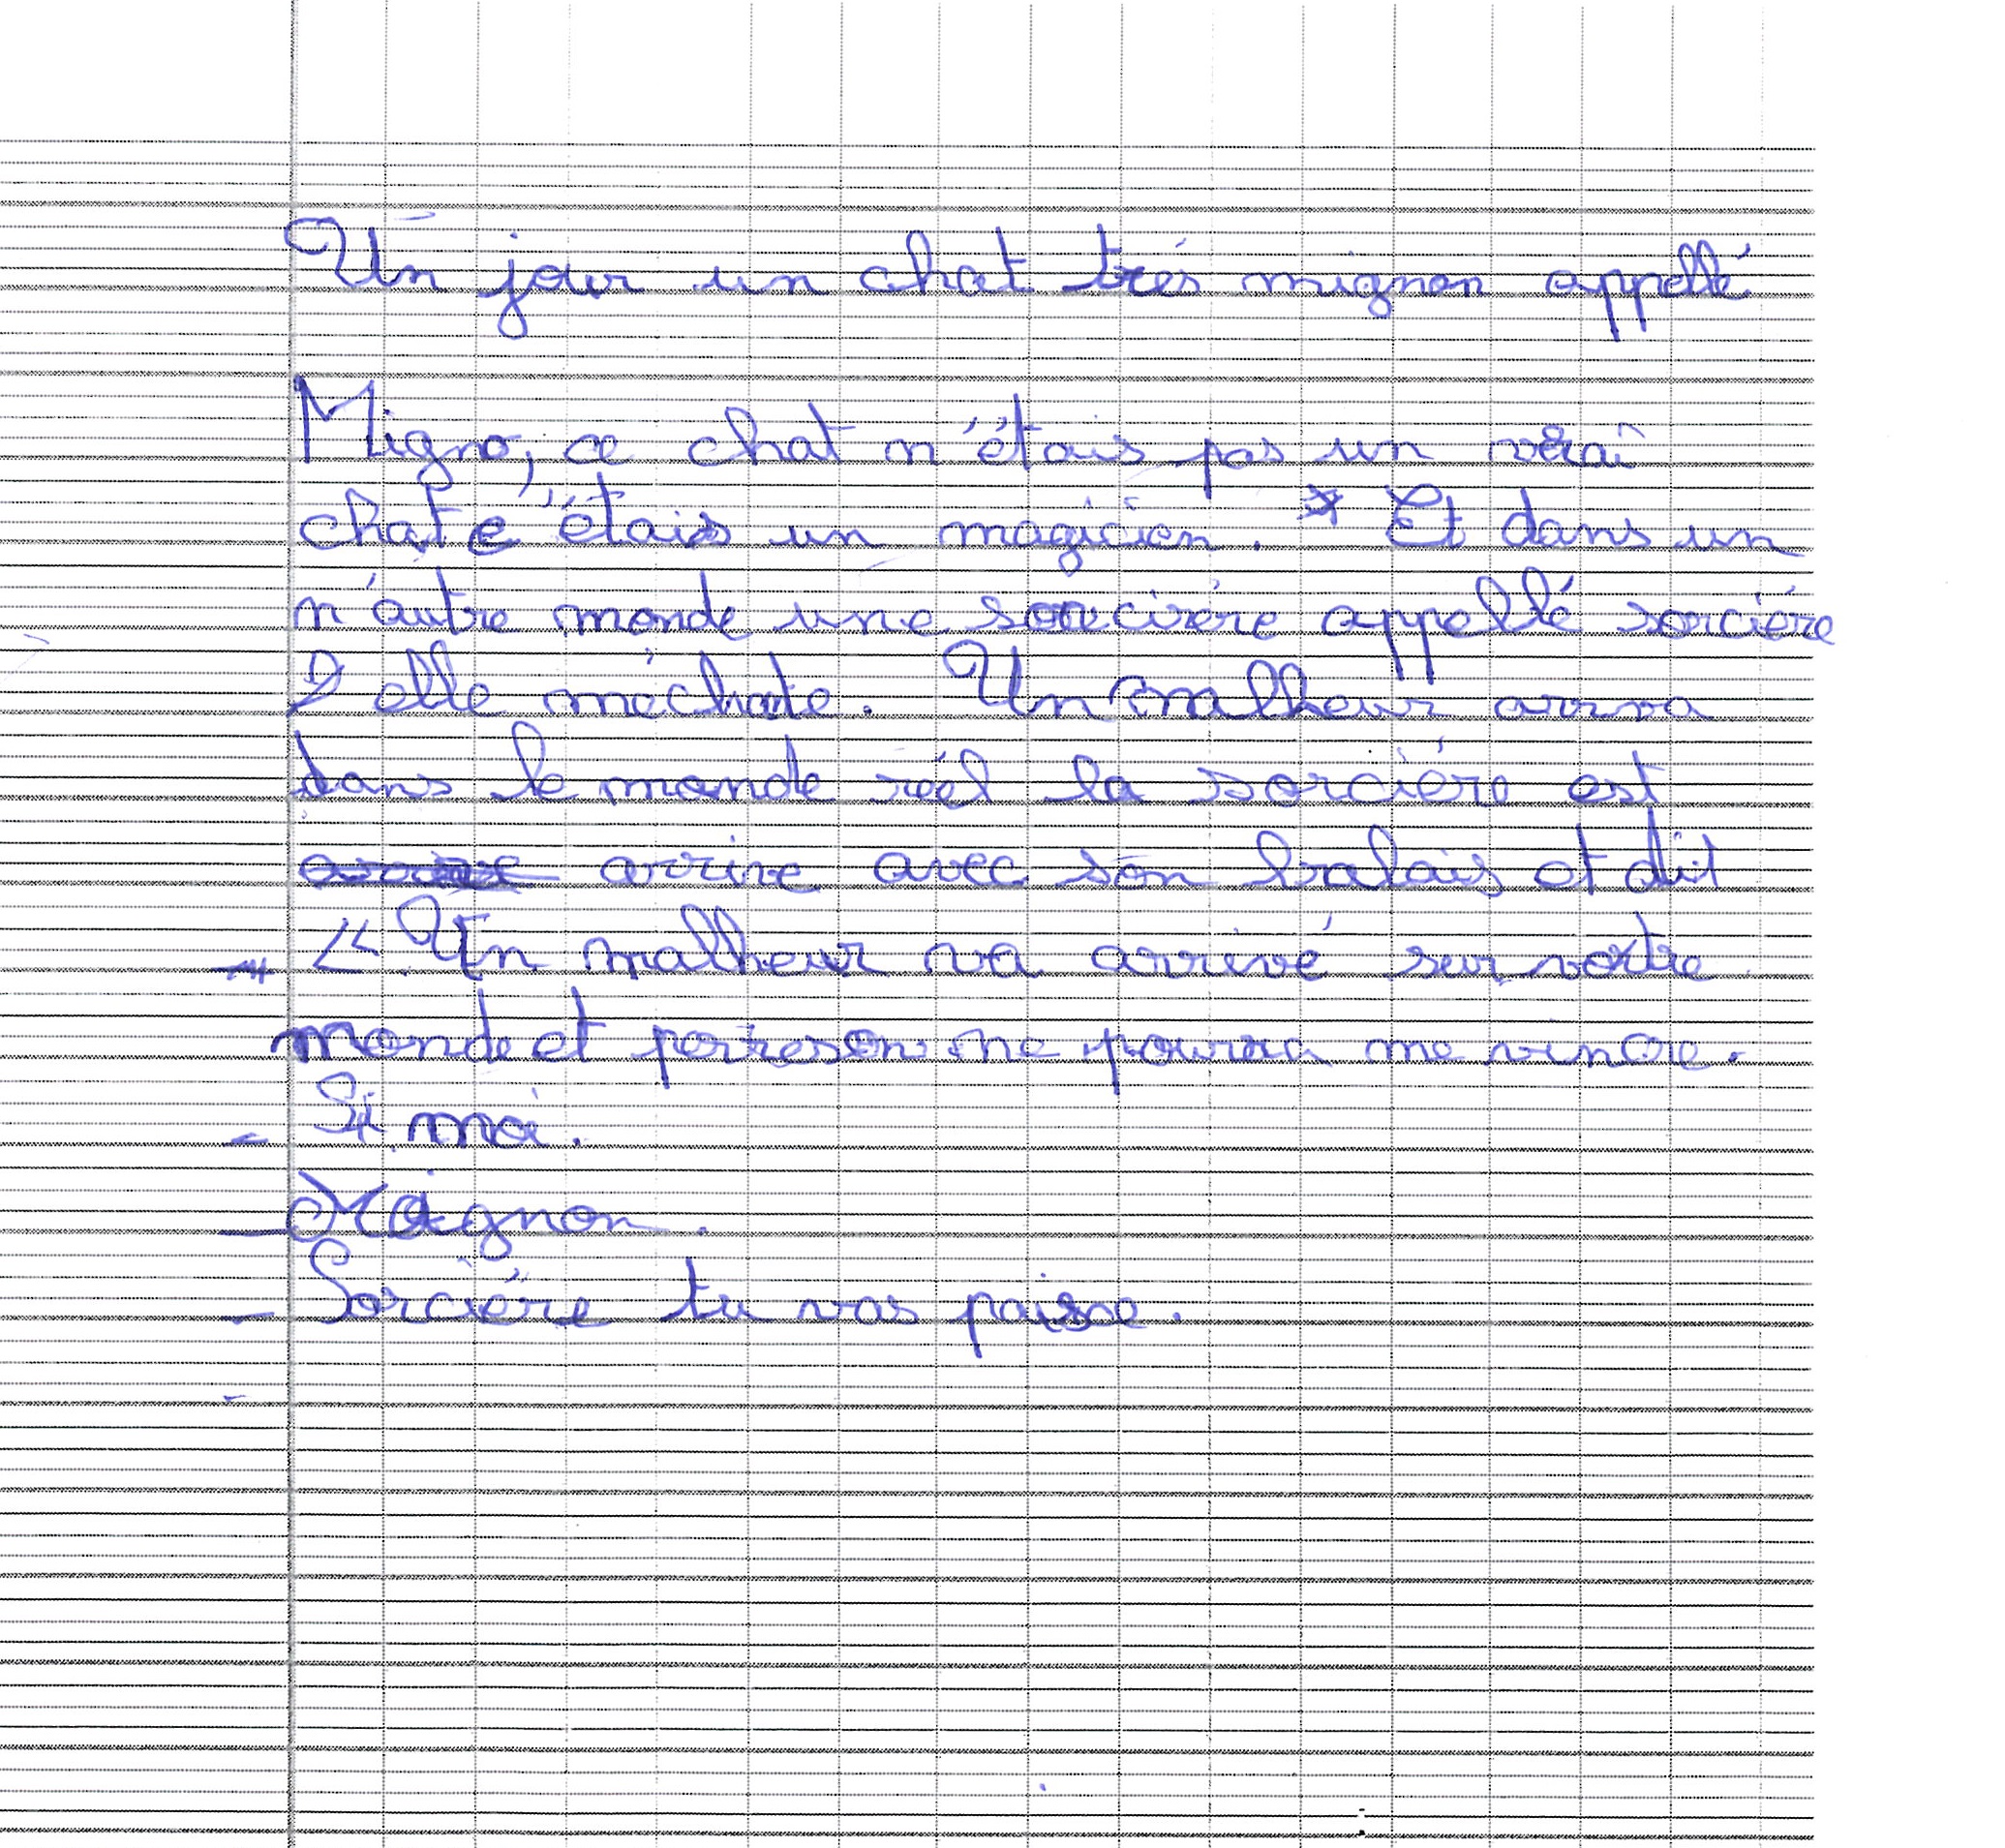 Un jour un chat trés mignon appellé
Migno, ce chat n'étais pas un vrai
chat c'étais un magicien. * Et dans un
n'autre monde une sorcirére appellé sorciére
2 elle méchate. Un malheur arriva
dans le monde réél la sorciére est
arrive avec son balais et dit
« Un malheur va arrivé sur votre
monde et person ne pourra me vincre.
- Si moi.
- Mignon.
- Sorciére tu vas
-